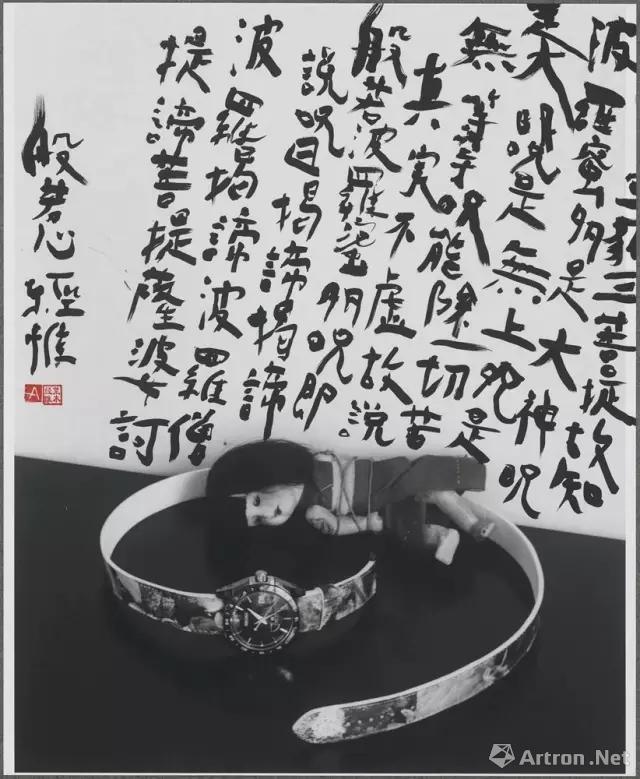 三藐三菩提故知
波羅蜜多是大神呪
是大明呪是無上呪是
無等等呪能除一切苦
真実不虚故説
般若波羅蜜多呪即
説呪曰揭諦揭諦
波羅揭諦波羅僧
提諦菩提薩婆訶
般若心経惟
A
Artron.Net